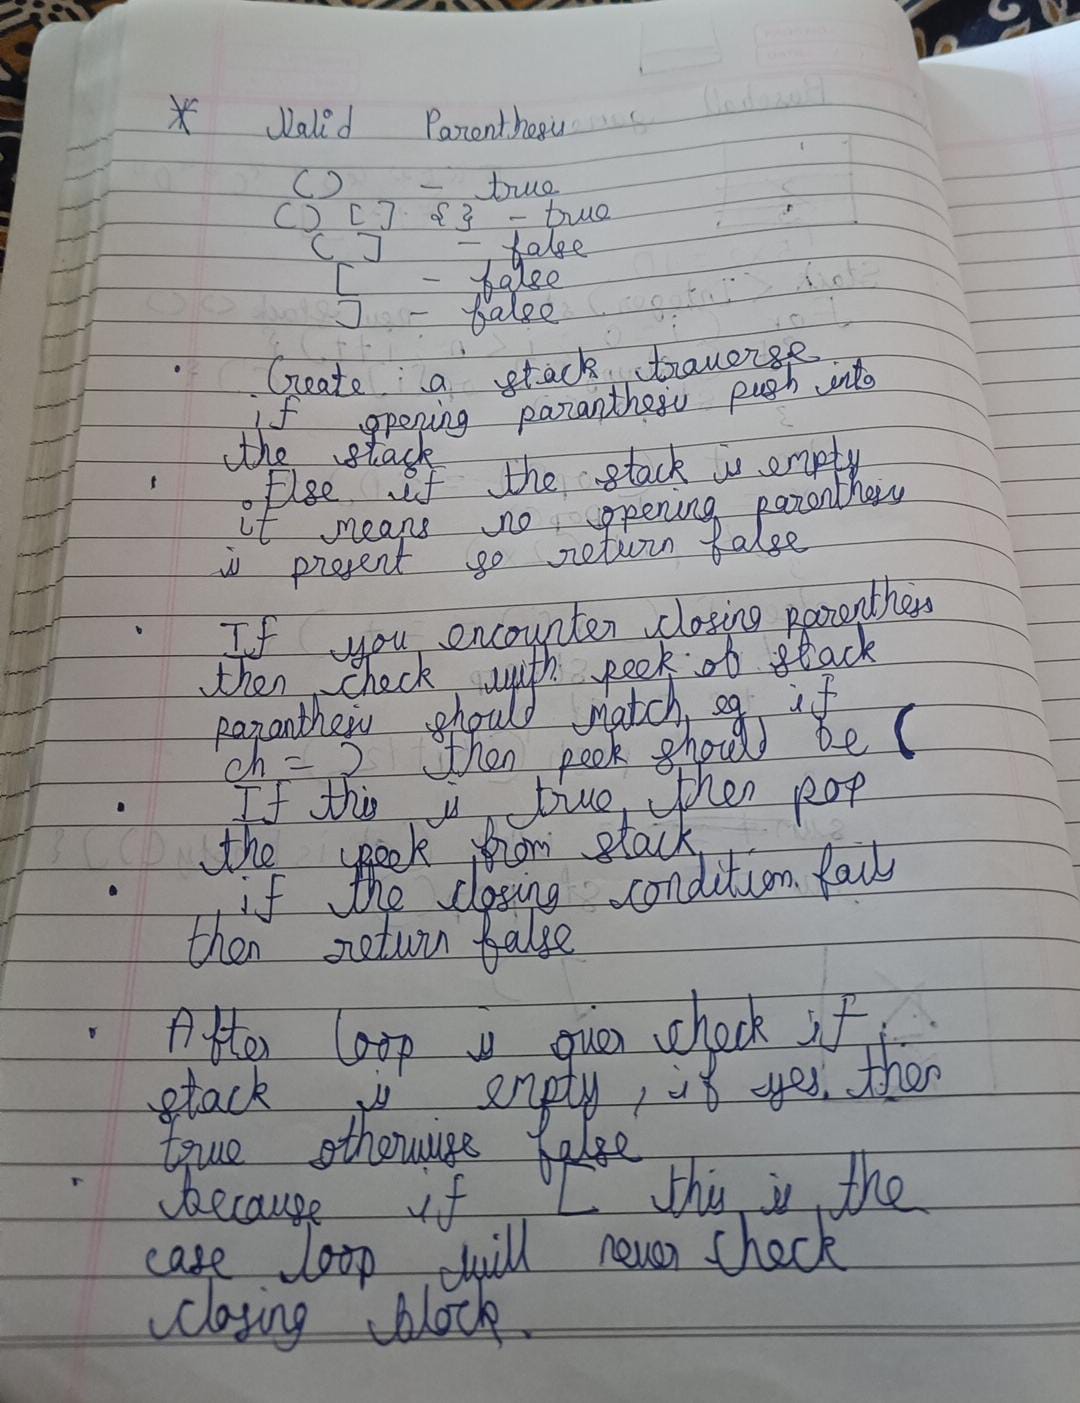 * Valid Parenthesis
() - true
() [] {} - true
(] - false
[ - false
] - false
. Create a stack traverse
if opening paranthesis push into
the stack
. Else if the stack is empty
it means no opening parenthesis
is present so return false
. If you encounter closing parenthesis
then check with peek of stack
paranthesis should match eg if
ch = ) then peek should be (
. If this is true then pop
the peek from stack
. if the closing condition fails
then return false
. After loop is over check if
stack is empty, if yes then
true otherwise false
. because if [ this is the
case loop will never check
closing block.